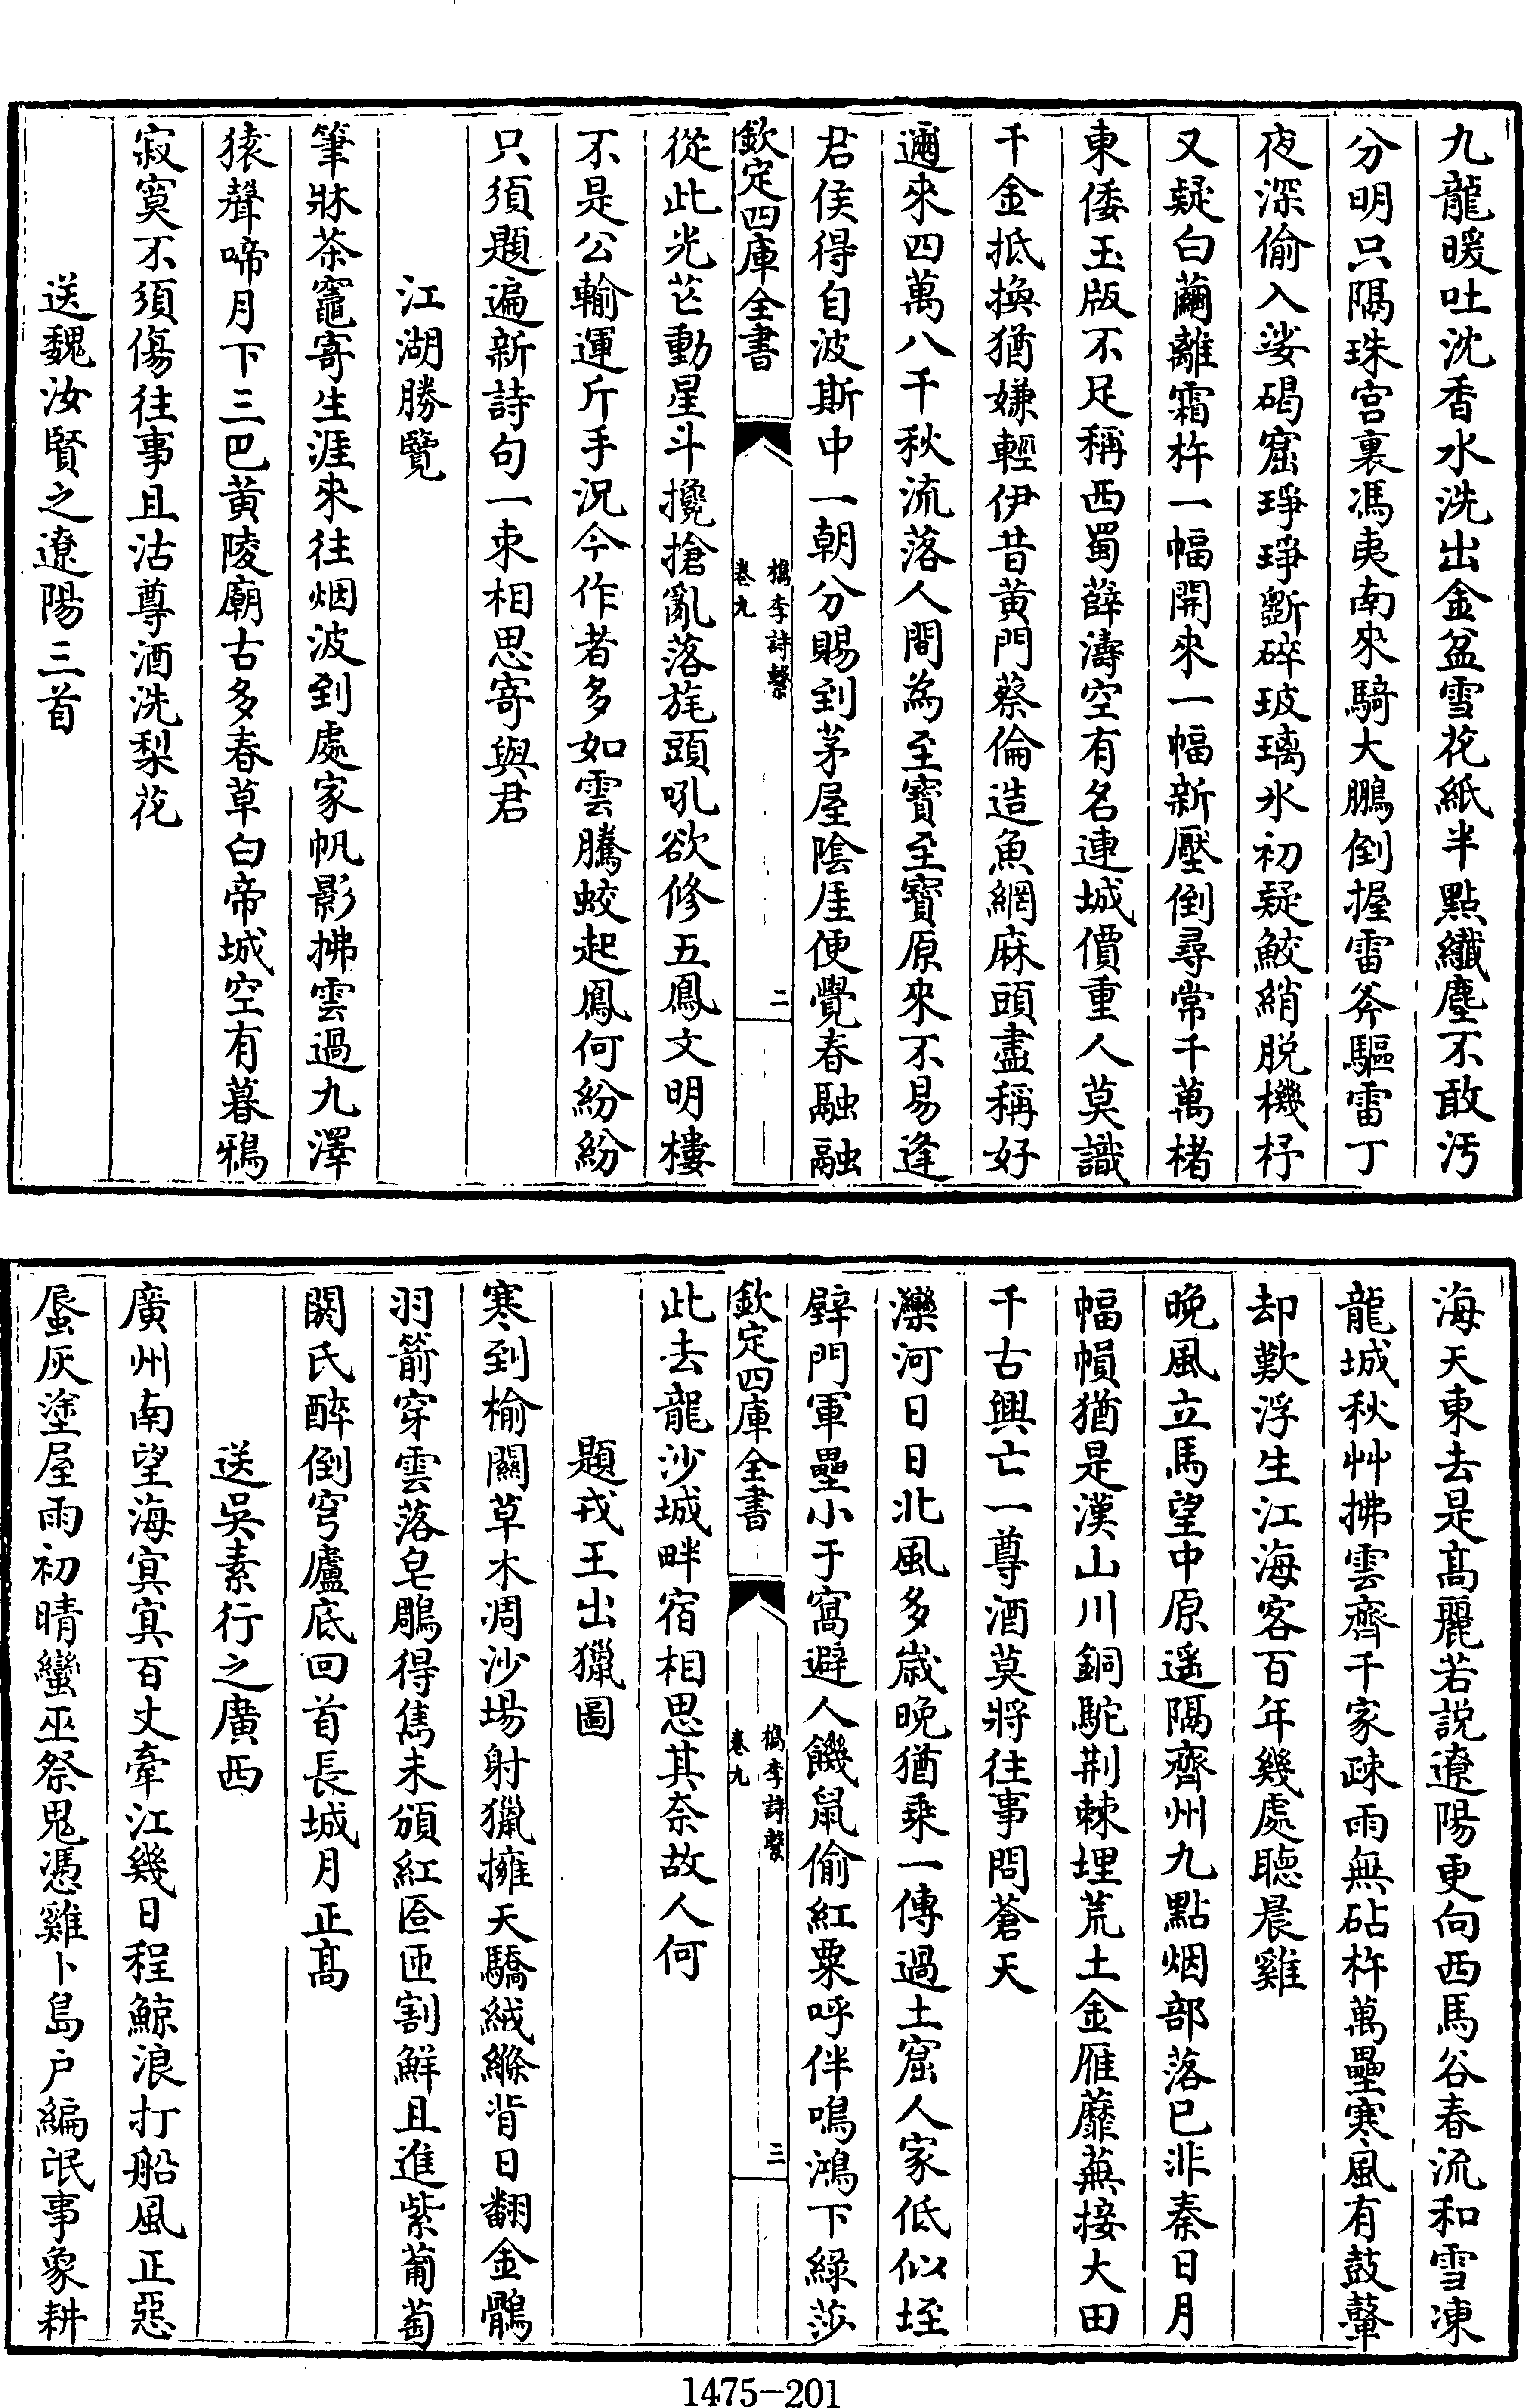 九龍暖吐沈香水洗出金盆雪花紙半點纖塵不敢汚
分明只隔珠宫裏馮夷南來騎大鵬倒握雷斧驅雷丁
夜深偷入娑碣窟琤琤斷碎玻璃氷初疑鮫綃脱機杼
又疑白繭離霜杵一幅開來一幅新壓倒尋常千萬楮
東倭玉版不足稱西蜀薛濤空有名連城價重人莫識
千金抵換猶嫌輕伊昔黄門蔡倫造魚網麻頭盡稱好
邇來四萬八千秋流落人間為至寳至寳原來不易逢
君侯得自波斯中一朝分賜到茅屋陰厓便覺春融融
欽定四庫全書
檇李詩繫
卷九
二
從此光芒動星斗攙搶亂落旄頭吼欲修五鳳文明樓
不是公輸運斤手況今作者多如雲騰蛟起鳳何紛紛
只須題遍新詩句一束相思寄與君
江湖勝覽
筆牀茶竈寄生涯來往烟波到處家帆影拂雲過九澤
猿聲啼月下三巴黄陵廟古多春草白帝城空有暮鴉
寂寞不須傷往事且沽尊酒洗梨花
送魏汝賢之遼陽三首
海天東去是髙麗若説遼陽更向西馬谷春流和雪凍
龍城秋艸拂雲齊千家疎雨無砧杵萬壘寒風有鼓鼙
却歎浮生江海客百年幾處聽晨雞
晚風立馬望中原遥隔齊州九點烟部落已非秦日月
幅幀猶是漢山川銅駝荆棘埋荒土金雁蘼蕪接大田
千古興亡一尊酒莫將往事問蒼天
灤河日日北風多歲晚猶乗一傳過土窟人家低似垤
辟門軍壘小于窩避人饑鼠偷紅粟呼伴鳴鴻下緑莎
欽定四庫全書
檇李詩繫
卷九
三
此去龍沙城畔宿相思其奈故人何
題戎王出獵圖
寒到榆關草木凋沙場射獵擁天驕絨縧背日翻金鶻
羽箭穿雲落皂鵰得雋未頒紅匼匝割鮮且進紫葡萄
閼氏醉倒穹廬底回首長城月正髙
送吳素行之廣西
廣州南望海冥冥百丈牽江幾日程鯨浪打船風正惡
蜃灰塗屋雨初晴蠻巫祭鬼憑雞卜島户編氓事象耕
1475-201